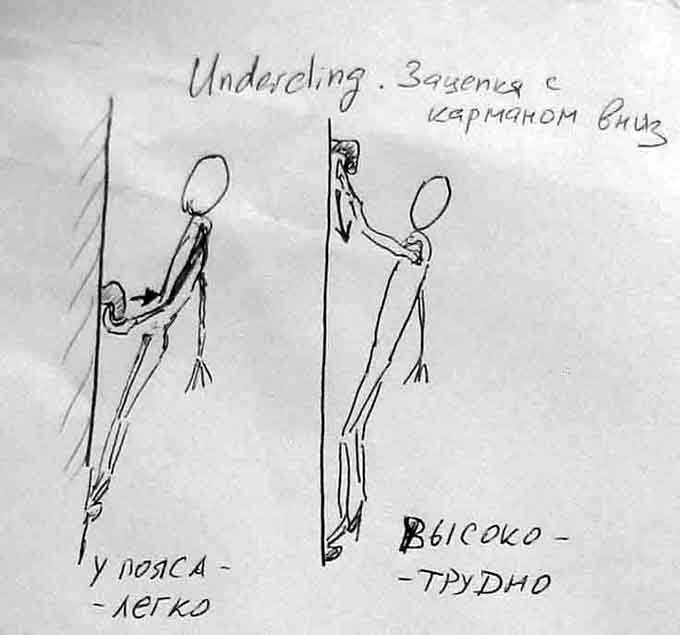 Undercling. Зацепка с
карманом вниз
У ПОЯСА -
- ЛЕГКО
ВЫСОКО -
- ТРУДНО